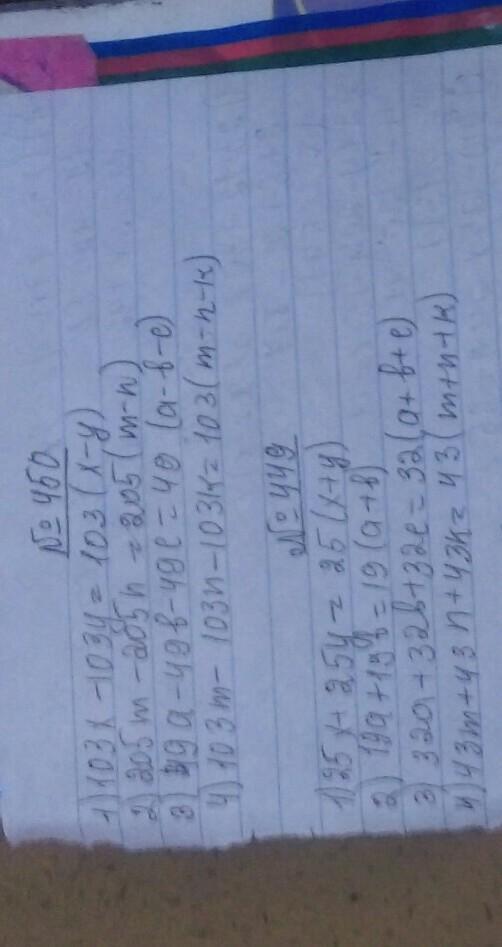 № 450
1) 103x - 103y = 103 (x-y)
2) 205m - 205n = 205 (m-n)
3) 49a - 49в - 49с = 49 (a-в-с)
4) 103m - 103n - 103к = 103 (m-n-к)
№ 449
1) 25x + 25y = 25 (x+y)
2) 19a + 19в = 19 (a+в)
3) 32a + 32в + 32с = 32 (a+в+с)
4) 43m + 43n + 43к = 43 (m+n+к)